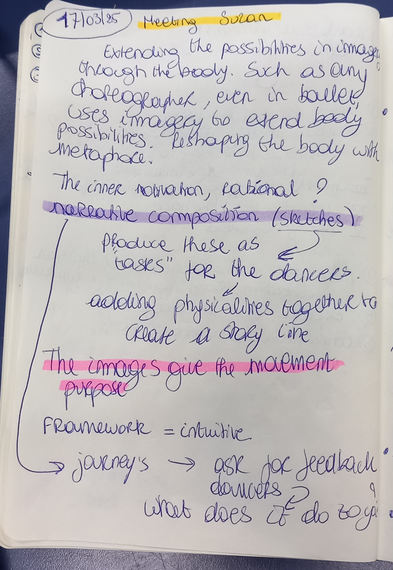 17/03/25 Meeting Suzan
Extending the possibilities in imagery
through the body. Such as any
choreographer, even in ballet,
uses imagery to extend body
possibilities. Reshaping the body with
metaphore.
The inner motivation, rational ?
narrative composition (sketches)
produce these as
"tases" for the dancers.
adding physicalities together to
create a story line
The images give the movement
purpose
FRAMEWORK = intuitive
journey's → ask for feedback
dancers ?
what does it do to